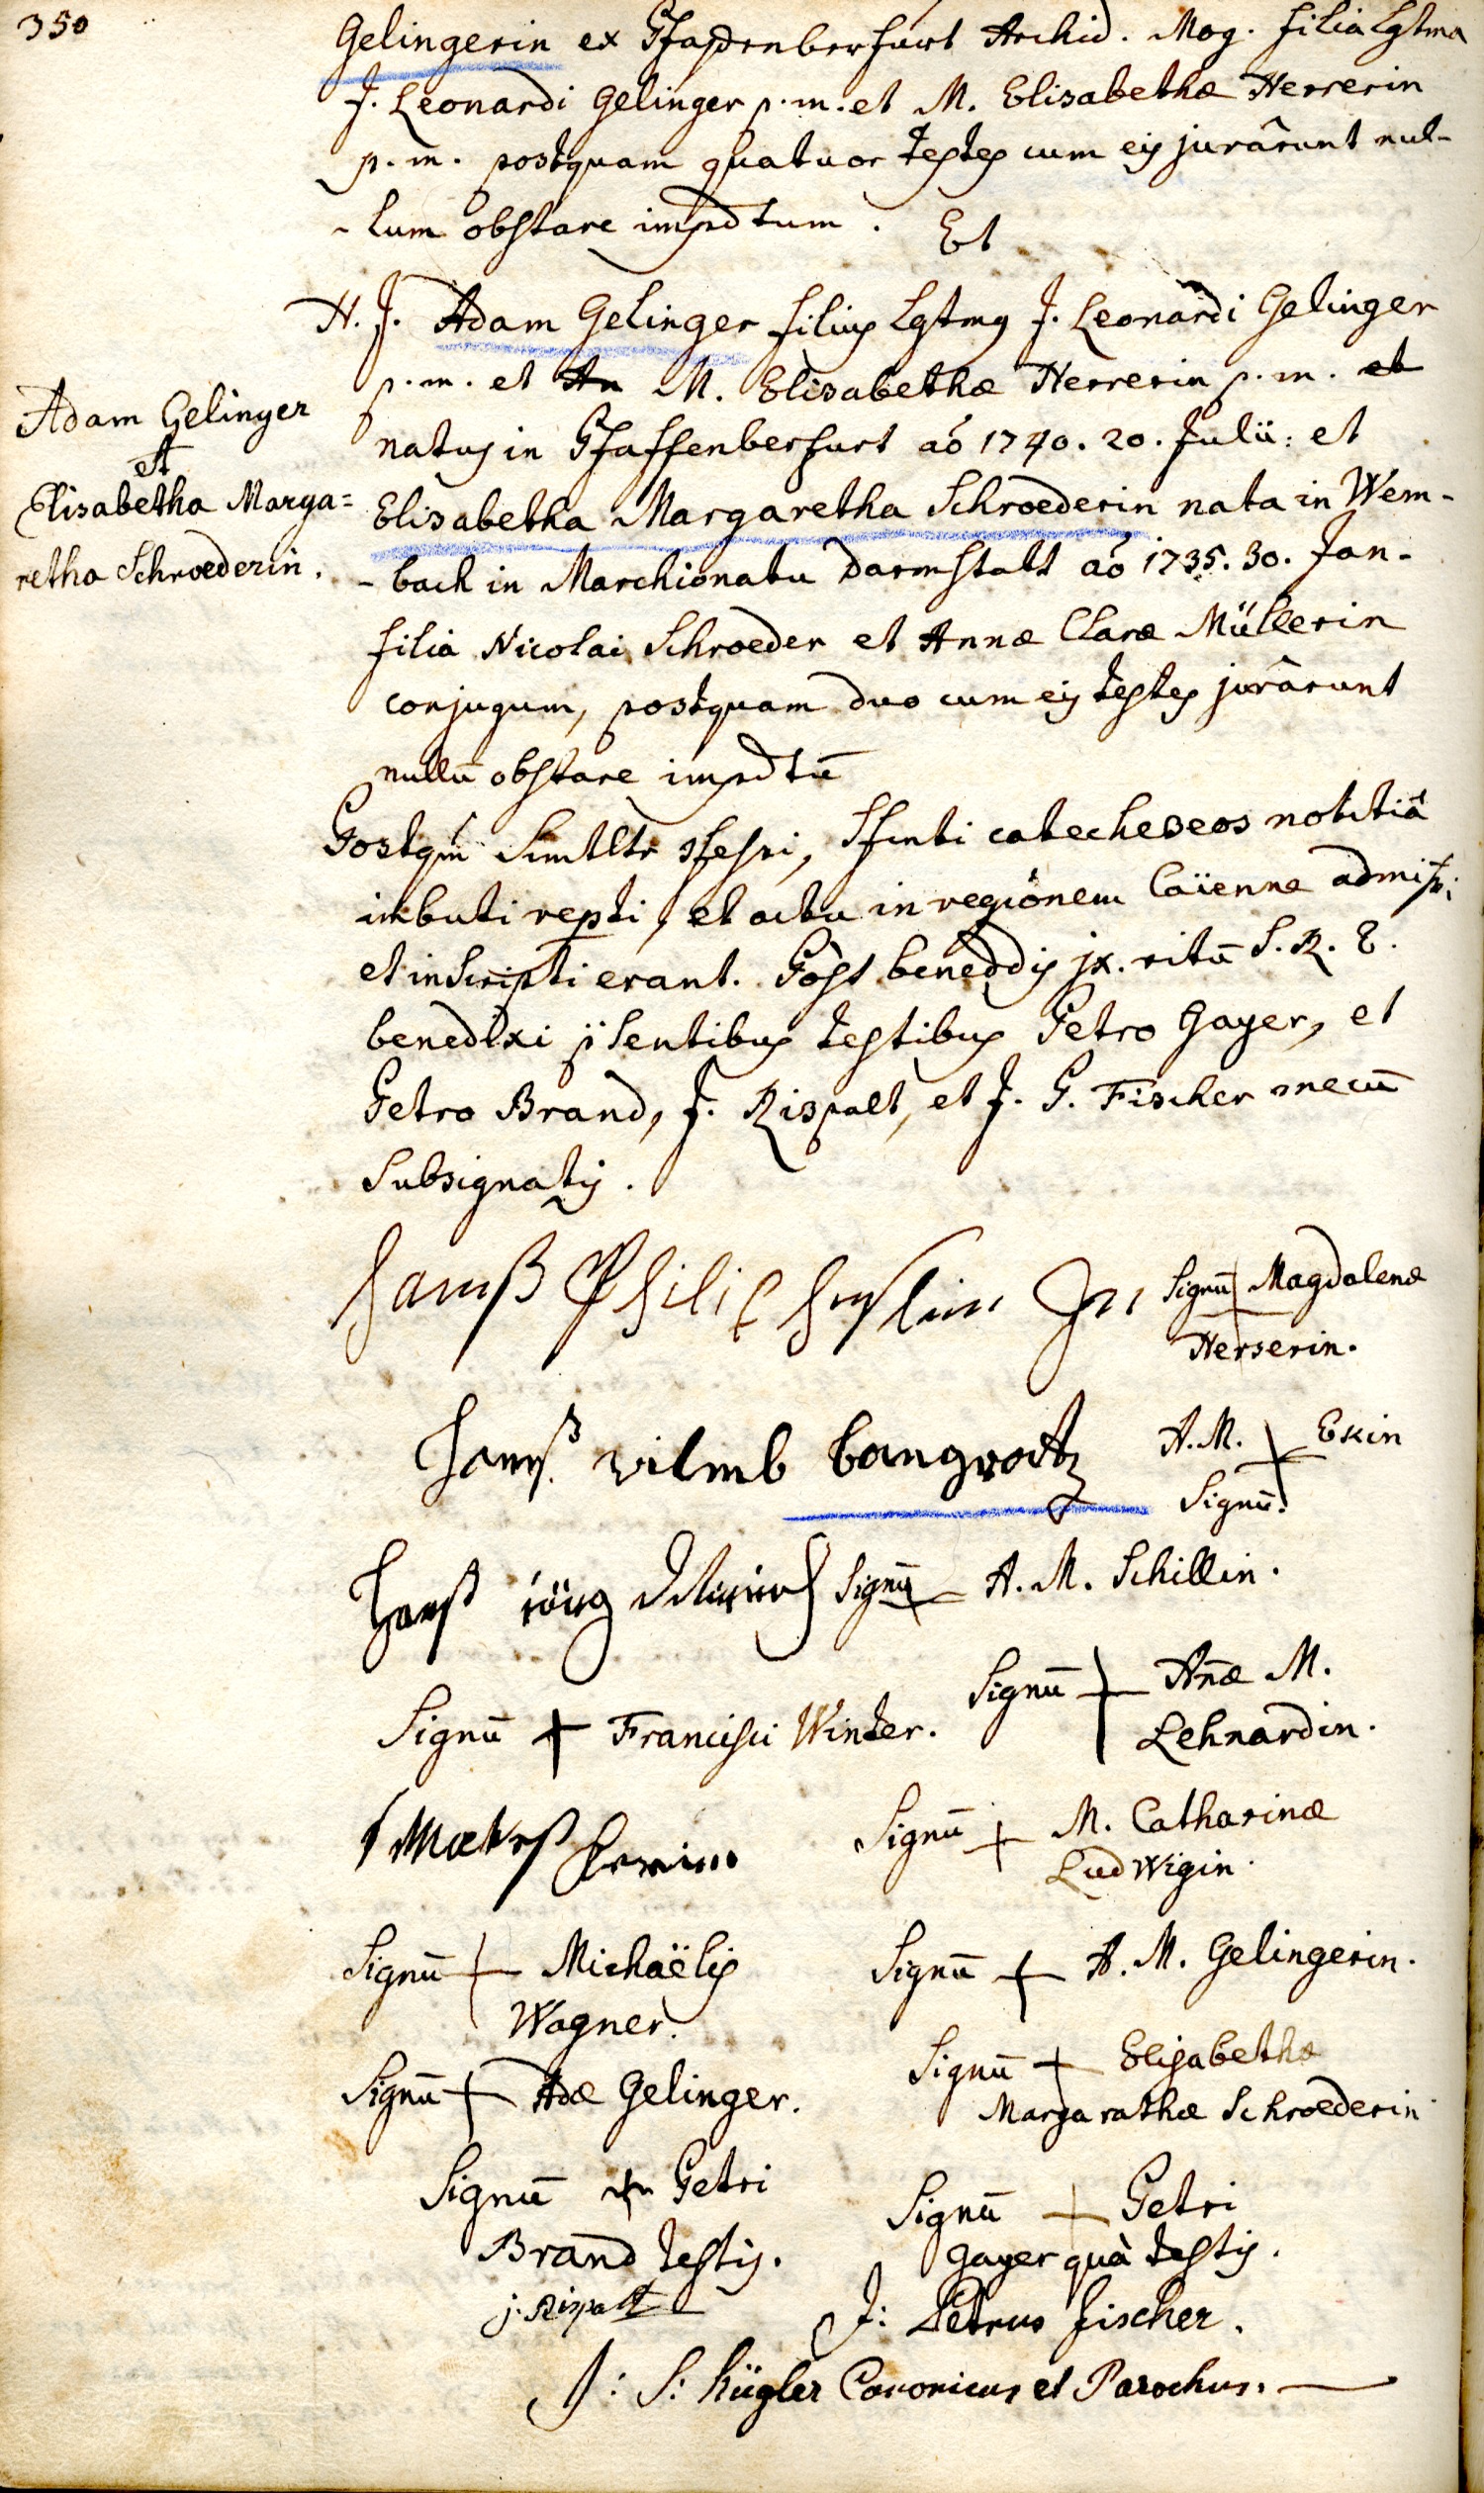 350
Gelingerin ex Pfaffenberfurt Archid. Mog. filia Lgtma
J. Leonardi Gelinger p. m. et M. Elisabethæ Herrerin
p. m. postquam quatuor testes cum eis jurârunt nul-
-lum obstare impdtum. Et
H. J. Adam Gelinger filius Lgtmus J. Leonardi Gelinger
p. m. et An M. Elisabethæ Herrerin p. m. et
natus in Pfaffenberfurt aó 1740. 20. Julii: et
Adam Gelinger
et
Elisabetha Marga=
retha Schroederin.
Elisabetha Margaretha Schroederin nata in Wem-
-bach in Marchionatu Darmstatt aó 1735. 30. Jan-
filia Nicolai Schroeder et Annæ Claræ Müllerin
conjugum, postquam duo cum eis testes jurârunt
nullū obstare impdtū
Postqm̄ Smtltr sfessi, Sfinti catecheseos notitiâ
imbuti repti, et actu in regionem Caïenne admissi
et inscripti erant. Post beneddis jx. ritū S. R. E.
benedixi p̄sentibus testibus Petro Gayer, et
Petro Brand, J. Rispalt, et J. P. Fischer mecū
Subsignatis.
Hanß Philip
Signū Magdalenæ
Herserin.
Hanß vilmb bangratz
A. M. + Ekin
Signū.
Hanß jörg
Signū + A. M. Schillin.
Signū + Francisci Winter.
Signū + Añæ M.
Lehnardin.
Signū + M. Catharinæ
Ludwigin.
Signū + Michaëlis
Wagner.
Signū + A. M. Gelingerin.
Signū + Adæ Gelinger.
Signū + Elisabethæ
Margarathæ Schroederin
Signū + Petri
Brand testis.
Signū + Petri
Gayer quà testis.
j. Rispalt
J: Petrus fischer.
J: S: Kügler Canonicus et Parochus.